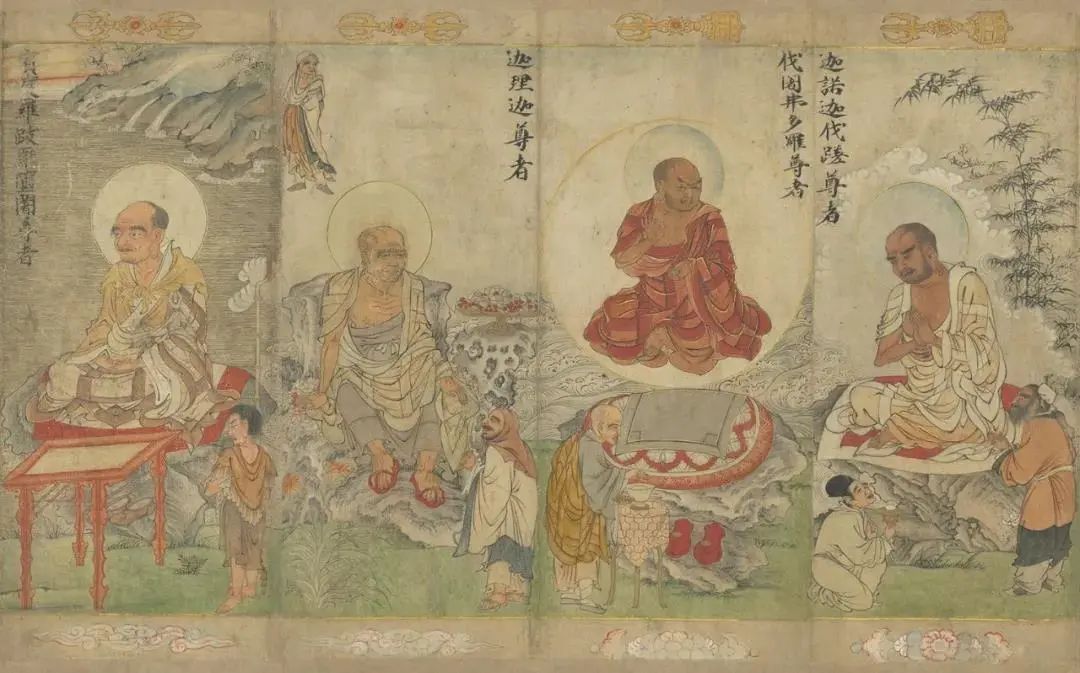 迦諾迦伐蹉尊者
伐闍弗多羅尊者
迦理迦尊者
度羅跋闍尊者